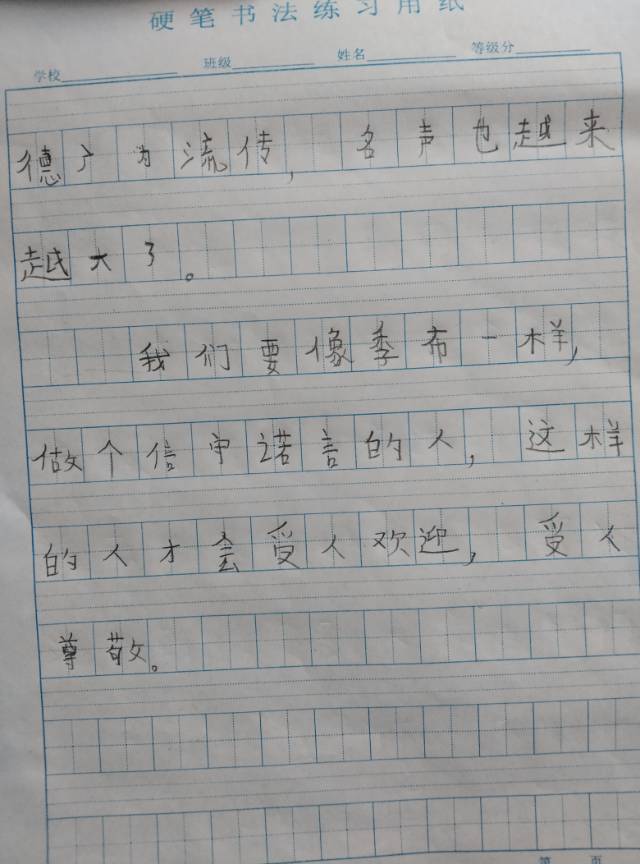 硬笔书法练习用纸
学校 班级 姓名 等级分
德广为流传，名声也越来
越大了。
我们要像季布一样，
做个信守诺言的人，这样
的人才会受人欢迎，受人
尊敬。
第 页